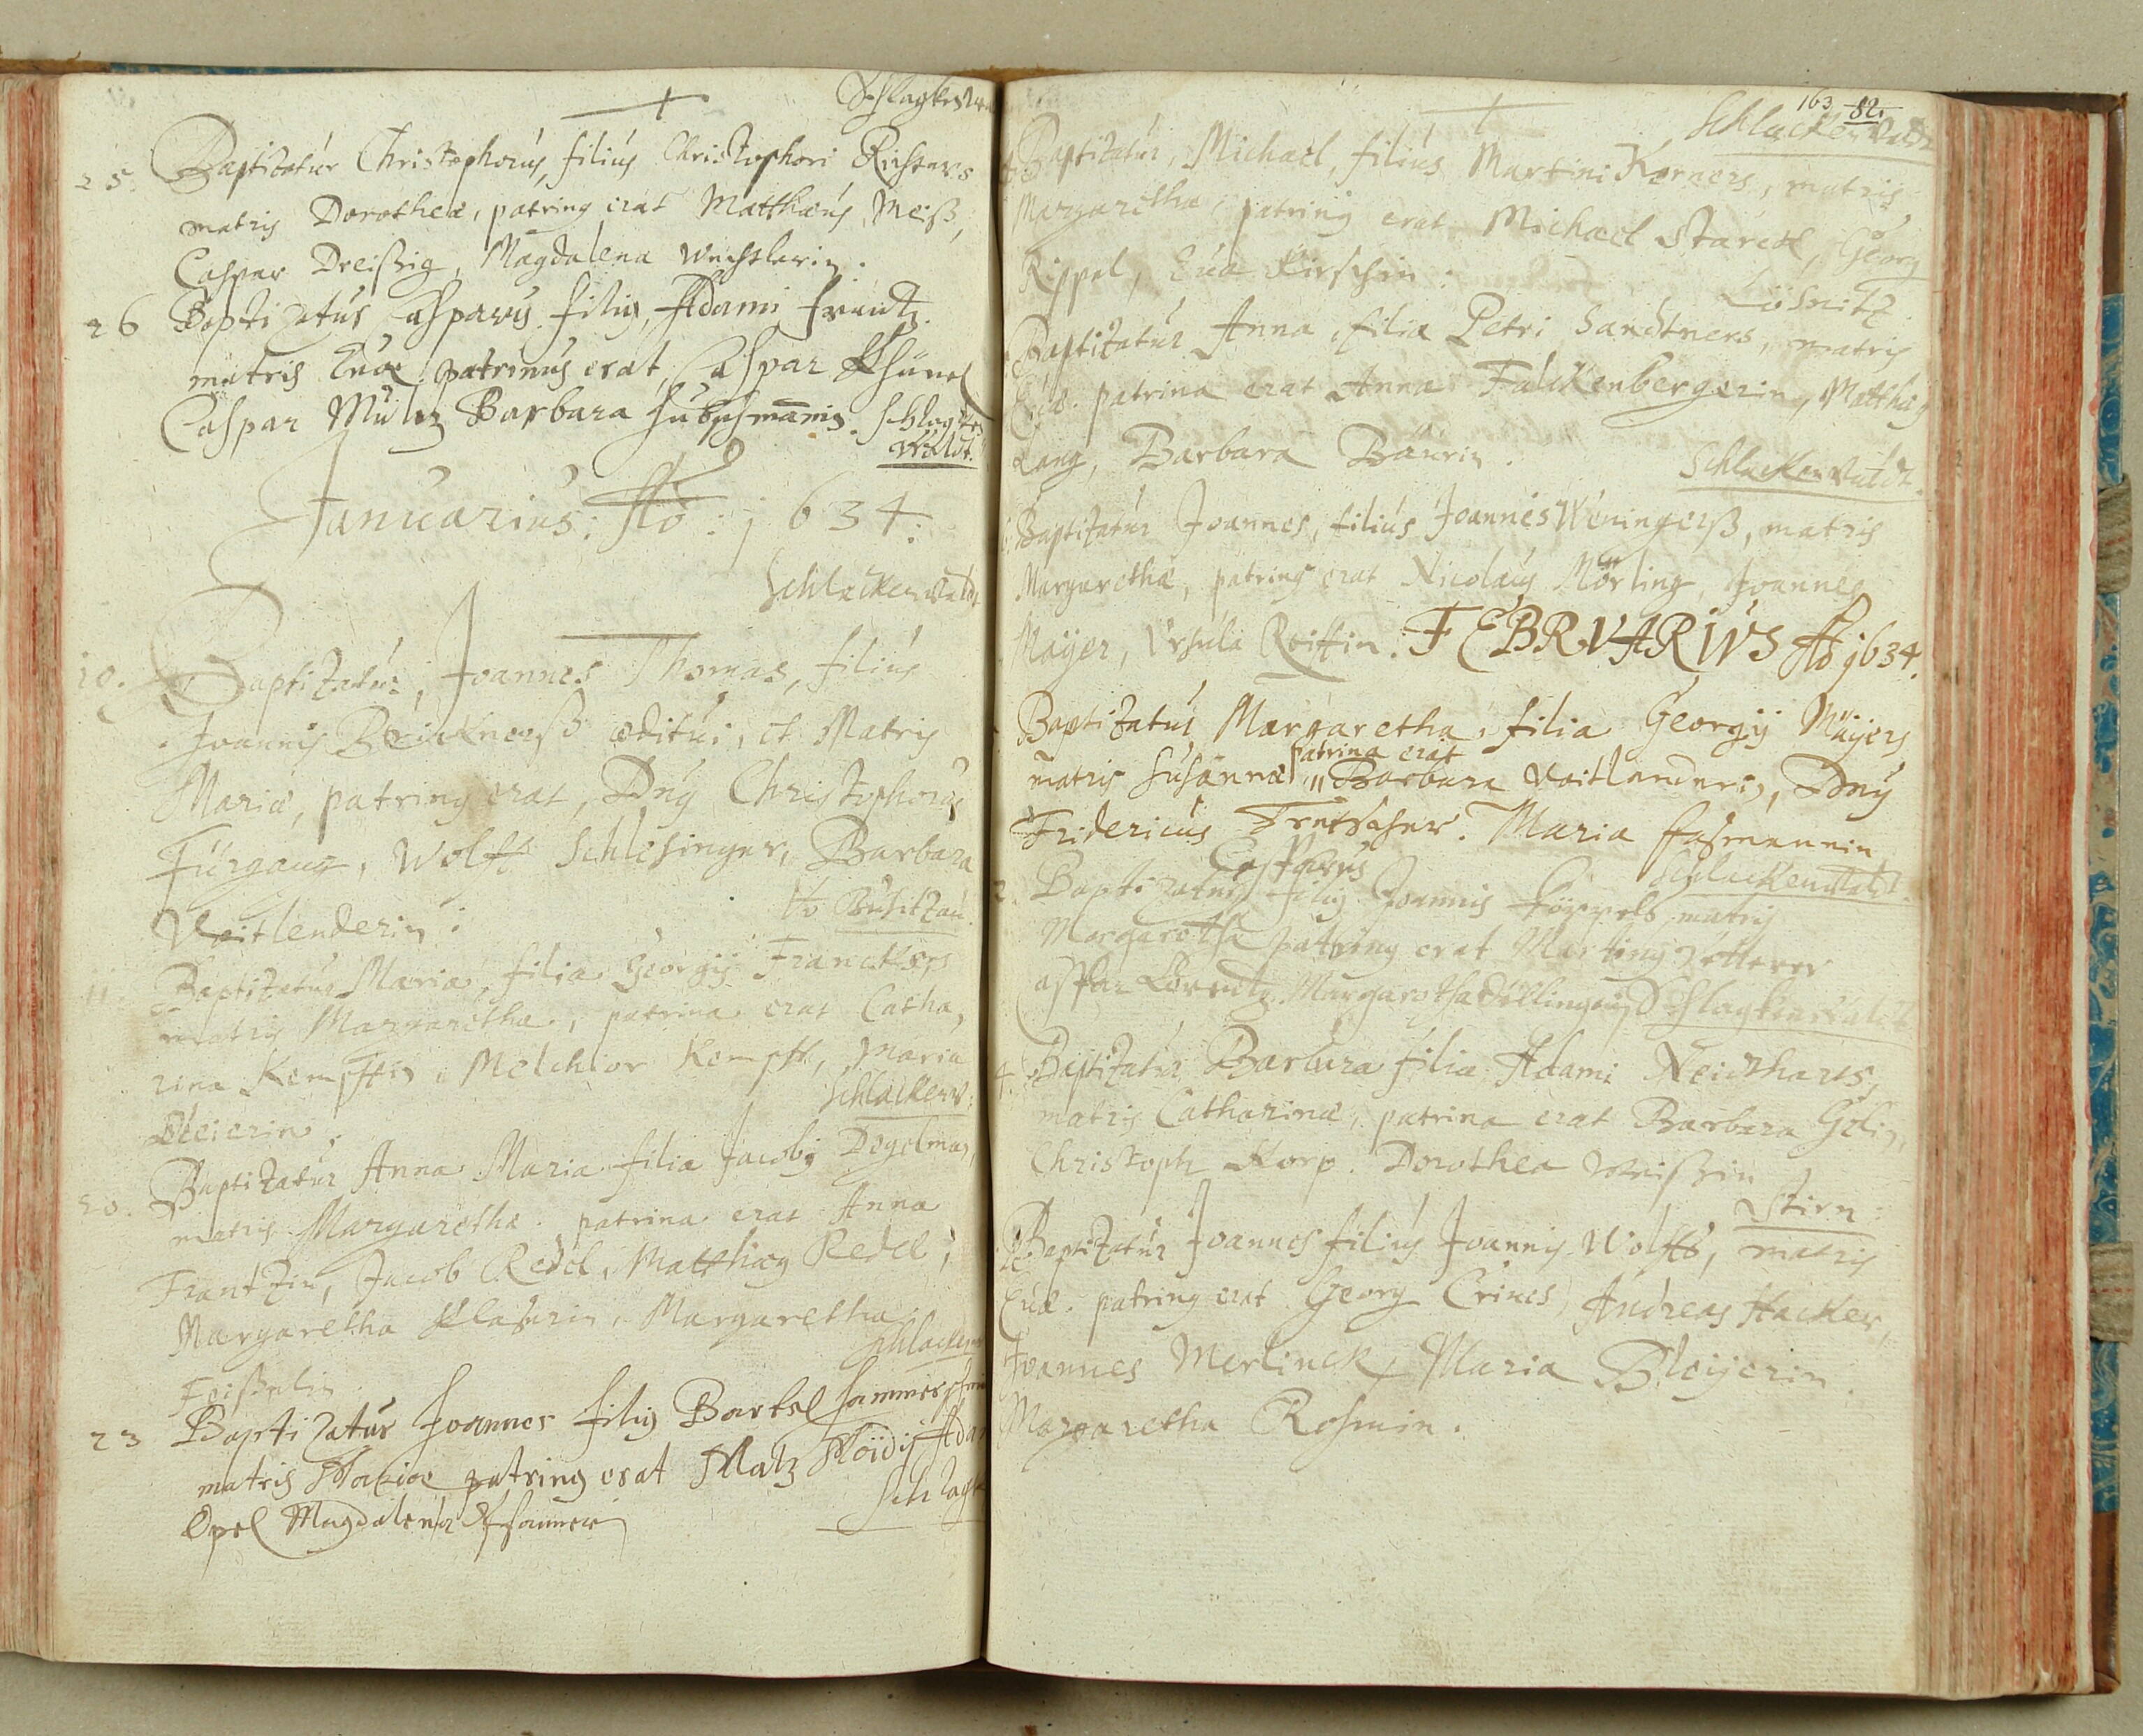 Schlagkenwa
25. Baptizatur Christophorus, filius Christophori Richters
matris Dorotheæ, patrinus erat Matthæus Meiß,
Caspar Dreißig, Magdalena Wechslerin.
26 Baptizatus Casparus filius Adami Frantz
matris Euæ patrinus erat Caspar
Caspar Mültz Barbara Schlagken
waldt.
Januarius: Ao: 1634:
Schlackenwaldt
10. Baptizatur, Joannes Thomas, filius
Joannis Brücknerß æditui, et Matris
Mariæ, patrinus erat, Dnus Christophorus
Fürgang, Wolff Schlesinger, Barbara
Voitlenderin:
11. Baptizatur Maria, filia Georgij Franckhers
matris Margarethæ, patrina erat Catha,
rina Kempffin, Melchior Kempff, Maria
Schlackenw:
Beierin.
20. Baptizatur Anna Maria filia Jacobi Degelman,
matris Margarethæ. patrina erat Anna
Frantzin, Jacob Redel, Matthæus Redel,
Margaretha Margaretha
Schlacken
Feißelin
23 Baptizatus Joannes filius Bartel
matris Mariæ patrinus erat Matz Adam
Opel Magdalena
Schlagk
163 82.
Schlackenwaldt
Baptizatur, Michael, filius Martini Kerners, matris
Margarethæ, patrinus erat Michael Starckl, Georg
Rippel, Eua Kirschin:
Lösnitz
Baptizatur Anna, filia Petri Sandtners, matris
Euæ. patrina erat Anna Falckenbergerin, Matthæus
Lang, Barbara Baurin.
Schlackenwaldt.
Baptizatur Joannes, filius Joannes Weningerß, matris
Margarethæ, patrinus erat Nicolaus Mörling, Joannes
Mayer, Vrsula Reiffin. FEBRVARIVS Ao 1634.
Baptizatus Margaretha, filia Georgij Mayers
matris Susannæ patrina erat Barbara Voitlenderin, Dnus
Fridericus Tretscher. Maria
Schlackenwaldt.
2. Baptizatus Casparus filius Joannis Töppels matris
Margaretha patrinus erat Martinus Zetterer
Caspar Lorentz Margaretha Döllingerin Schlagkenwaldt
4. Baptizatur Barbara filia Adami Neidharts,
matris Catharinæ, patrina erat Barbara
Christoph Korp. Dorothea Weißin
Stirn:
Baptizatur Joannes filius Joannis Wolffs, matris
Euæ. patrinus erat Georg Crines, Andreas Hacker,
Joannes Merlinck, Maria Bleijerin.
Margaretha Rosmin.